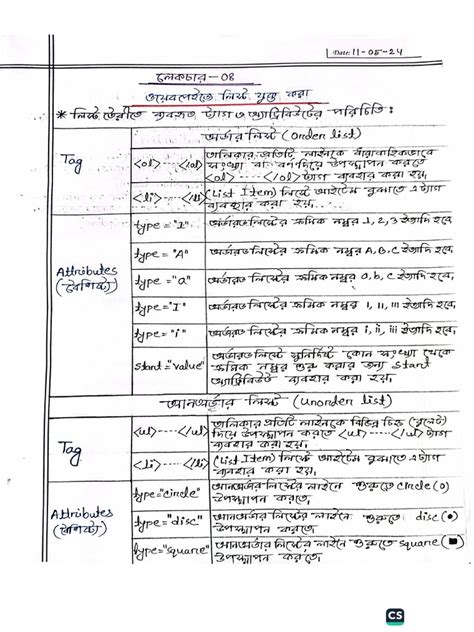 Date: 11-05-24
লেকচার-08
ওয়েবপেইজে লিস্ট যুক্ত করা
* লিস্ট তৈরীতে ব্যবহৃত ট্যাগ ও অ্যাট্রিবিউটের পরিচিতি:
অর্ডার লিস্ট (Orden list)
Tag
<ol>-----</ol>
তালিকার প্রতিটি লাইনকে ধারাবাহিকভাবে
সংখ্যা বা বর্ণ দিয়ে উপস্থাপন করতে
<ol> ---- </ol> ট্যাগ ব্যবহার করা হয়।
<li>-----</li>
(List Item) লিস্টে আইটেম বুঝাতে এ ট্যাগ
ব্যবহার করা হয়।
Attributes
(বৈশিষ্ট্য)
type="1"
অর্ডারলিস্টের ক্রমিক নম্বর 1, 2, 3 ইত্যাদি হবে
type="A"
অর্ডারলিস্টের ক্রমিক নম্বর A, B, C ইত্যাদি হবে
type="a"
অর্ডারলিস্টের ক্রমিক নম্বর a, b, c ইত্যাদি হবে
type="I"
অর্ডারলিস্টের ক্রমিক নম্বর I, II, III ইত্যাদি হবে
type="i"
অর্ডারলিস্টের ক্রমিক নম্বর i, ii, iii ইত্যাদি হবে
start="value"
অর্ডারলিস্টে সুনির্দিষ্ট কোন সংখ্যা থেকে
ক্রমিক নম্বর শুরু করার জন্য start
অ্যাট্রিবিউট ব্যবহার করা হয়।
আনঅর্ডার লিস্ট (Unorden list)
Tag
<ul>----</ul>
তালিকার প্রতিটি লাইনকে বিভিন্ন চিহ্ন (বুলেট)
দিয়ে উপস্থাপন করতে <ul> ---- </ul> ট্যাগ
ব্যবহার করা হয়।
<li>----</li>
(List Item) লিস্টে আইটেম বুঝাতে এ ট্যাগ
ব্যবহার করা হয়।
Attributes
(বৈশিষ্ট্য)
type="circle"
আনঅর্ডার লিস্টের লাইনে শুরুতে circle (○)
উপস্থাপন করতে।
type="disc"
আনঅর্ডার লিস্টের লাইনে শুরুতে disc (●)
উপস্থাপন করতে।
type="square"
আনঅর্ডার লিস্টের লাইনে শুরুতে square (■)
উপস্থাপন করতে।
CS